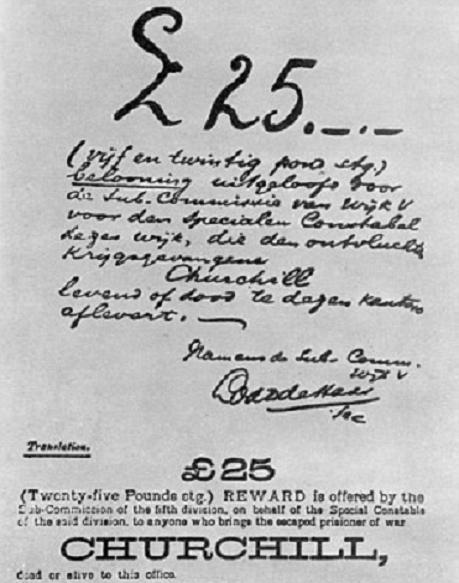 £ 25.-.-
(vijf en twintig pond stg.)
belooning uitgeloofd door
de Sub-Commissie van Wijk V
voor den specialen Constabel
dezes wijk, die den ontvluchte
Krijgsgevangene
Churchill
levend of dood te dezen kantore
aflevert.
Namens de Sub-Comm.
Wijk V
Sec
Translation.
£25
(Twenty-five Pounds stg.) REWARD is offered by the
Sub-Commission of the fifth division, on behalf of the Special Constable
of the said division, to anyone who brings the escaped prisioner of war
CHURCHILL,
dead or alive to this office.